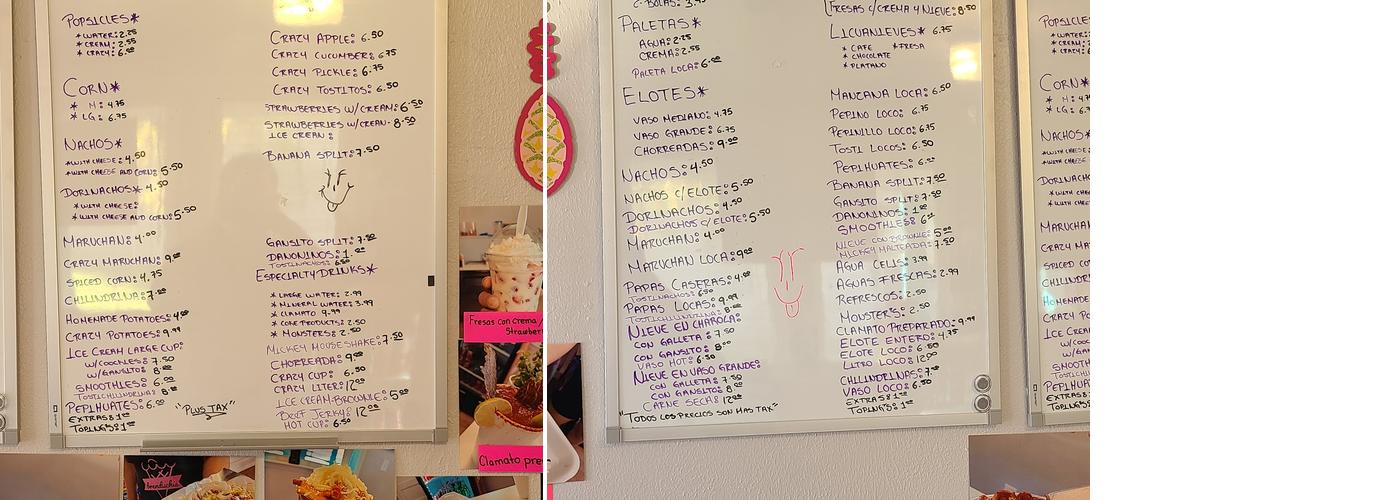 POPSICLES*
* WATER: 2.25
* CREAM: 2.55
* CRAZY: 6.00
CORN*
* M: 4.75
* LG: 6.75
NACHOS*
* WITH CHEESE: 4.50
* WITH CHEESE AND CORN: 5.50
DORINACHOS* 4.50
* WITH CHEESE:
* WITH CHEESE AND CORN: 5.50
MARUCHAN: 4.00
CRAZY MARUCHAN: 9.00
SPICED CORN: 4.75
CHILINDRINA: 7.00
HOMENADE POTATOES: 4.00
CRAZY POTATOES: 9.99
ICE CREAM LARGE CUP:
W/COOCKIES: 7.50
W/GANSITO: 8.00
SMOOTHIES: 6.00
TOSTICHILINDRINA: 8.00
PEPIHUATES: 6.00
EXTRAS: 1.00
TOPING'S: 1.00
"PLUS TAX"
CRAZY APPLE: 6.50
CRAZY CUCUMBER: 6.75
CRAZY PICKLE: 6.75
CRAZY TOSTITOS: 6.50
STRAWBERRIES W/CREAM: 6.50
STRAWBERRIES W/CREAM- 8.50
ICE CREAM:
BANANA SPLIT: 7.50
GANSITO SPLIT: 7.50
DANONINOS: 1.00
TOSTINACHOS: 6.50
ESPECIALTY DRINKS*
* LARGE WATER: 2.99
* MINERAL WATER: 3.99
* CLAMATO 9.99
* COKE PRODUCTS: 2.50
* MONSTERS: 2.50
MICKEY MOUSE SHAKE: 7.50
CHORREADA: 9.00
CRAZY CUP: 6.50
CRAZY LITER: 12.00
ICE CREAM-BROWNIE: 5.00
BEEF JERKY: 12.00
HOT CUP: 6.50
Fresas con crema/
Strawberr
Clamato pre
C. BOLAS: 3.
PALETAS*
AGUA: 2.25
CREMA: 2.55
PALETA LOCA: 6.00
ELOTES*
VASO MEDIANO: 4.75
VASO GRANDE: 6.75
CHORREADAS: 9.00
NACHOS: 4.50
NACHOS C/ELOTE: 5.50
DORINACHOS: 4.50
DORINACHOS C/ELOTE: 5.50
MARUCHAN: 4.00
MARUCHAN LOCA: 9.00
PAPAS CASERAS: 4.00
TOSTINACHOS: 6.50
PAPAS LOCAS: 9.99
TOSTICHILINDRINA: 8.00
NIEVE EN CHAROLA:
CON GALLETA: 7.50
CON GANSITO: 8.00
VASO HOT: 6.50
NIEVE EN VASO GRANDE:
CON GALLETA: 7.50
CON GANSITO: 8.00
CARNE SECA: 12.00
"TODOS LOS PRECIOS SON MAS TAX"
FRESAS C/CREMA Y NIEVE: 8.50
LICUANIEVES* 6.75
* CAFE *FRESA
* CHOCOLATE
* PLATANO
MANZANA LOCA: 6.50
PEPINO LOCO: 6.75
PEPINILLO LOCO: 6.75
TOSTI LOCOS: 6.50
PEPIHUATES: 6.00
BANANA SPLIT: 7.50
GANSITO SPLIT: 7.50
DANONINOS: 1.00
SMOOTHIES: 6.00
NIEVE CON BROWNIE: 5.00
MICKEY MALTEADA: 7.50
AGUA CELIS: 3.99
AGUAS FRESCAS: 2.99
REFRESCOS: 2.50
MONSTER'S: 2.50
CLAMATO PREPARADO: 9.99
ELOTE ENTERO: 4.75
ELOTE LOCO: 6.50
LITRO LOCO: 12.00
CHILINDRINAS: 7.00
VASO LOCO: 6.50
EXTRAS: 1.00
TOPING'S: 1.00